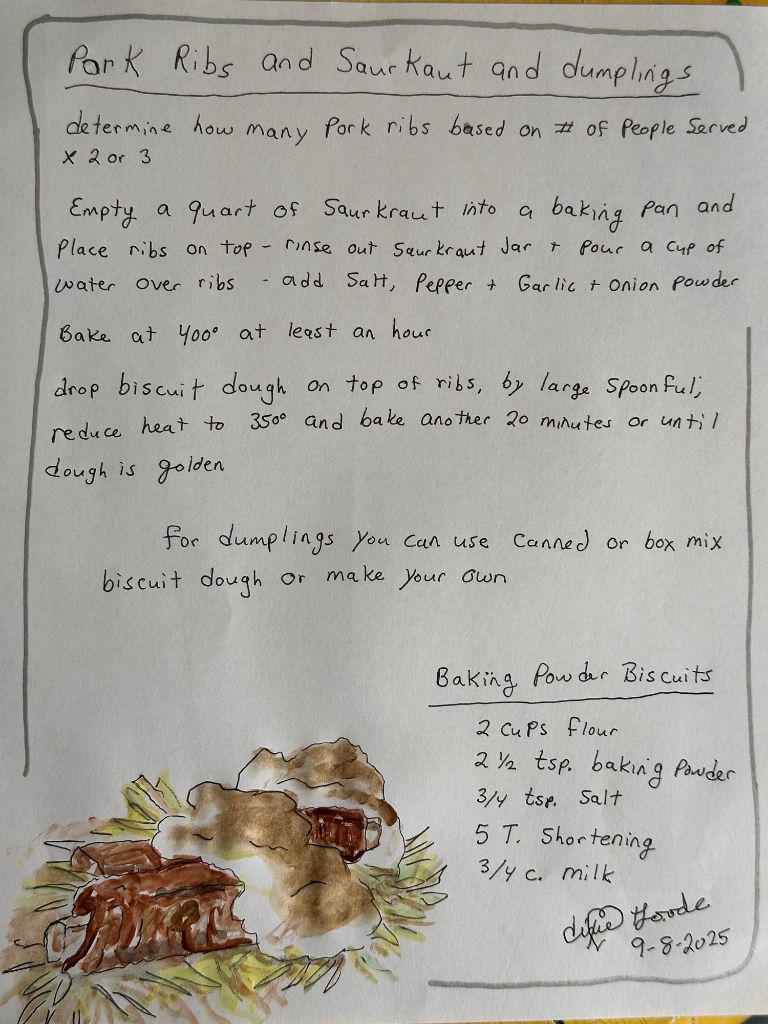 Pork Ribs and Saurkaut and dumplings
determine how many Pork ribs based on # of People Served
x 2 or 3
Empty a quart of Saurkraut into a baking pan and
Place ribs on top - rinse out Saurkraut Jar + Pour a cup of
water over ribs - add Salt, Pepper + Garlic + Onion Powder
Bake at 400° at least an hour
drop biscuit dough on top of ribs, by large Spoonful;
reduce heat to 350° and bake another 20 minutes or until
dough is golden
For dumplings you can use Canned or box mix
biscuit dough or make your own
Baking Powder Biscuits
2 Cups flour
2 1/2 tsp. baking Powder
3/4 tsp. Salt
5 T. Shortening
3/4 c. milk
9-8-2025